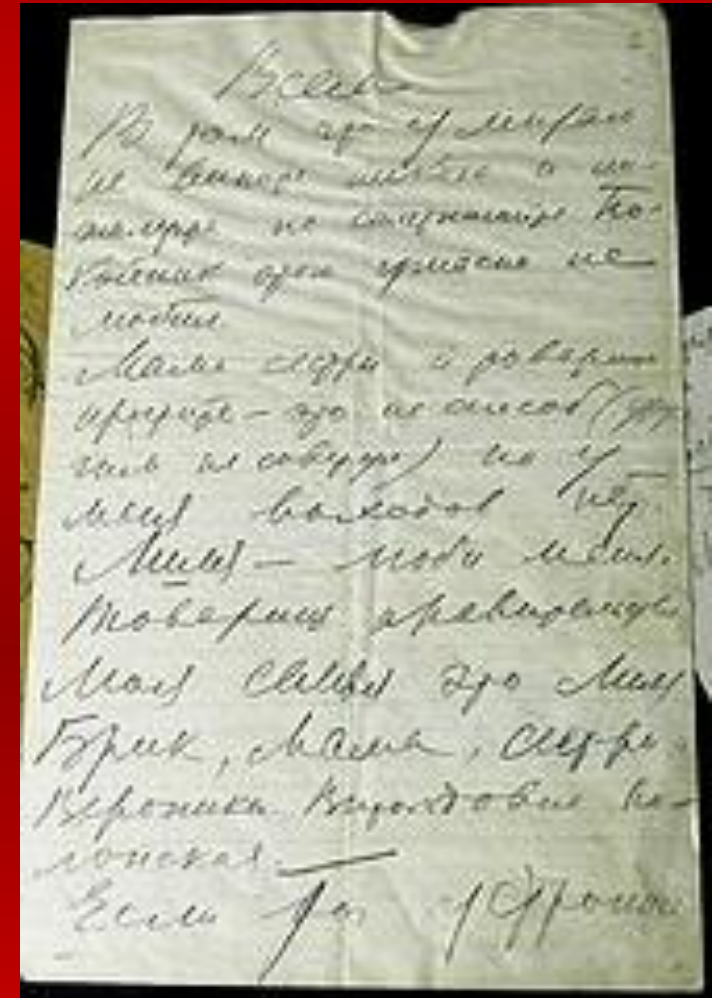 Всем
В том что умираю
не вините никого и по-
жалуйста не сплетничайте По-
койник этого ужасно не
любил.
Мама сестры и товарищи
простите – это не способ (дру-
гим не советую) но у
меня выходов нет.
Лиля – люби меня.
Товарищ правительство
моя семья это Лиля
Брик, мама, сестры и
Вероника Витольдовна По-
лонская. –
Если ты устроишь